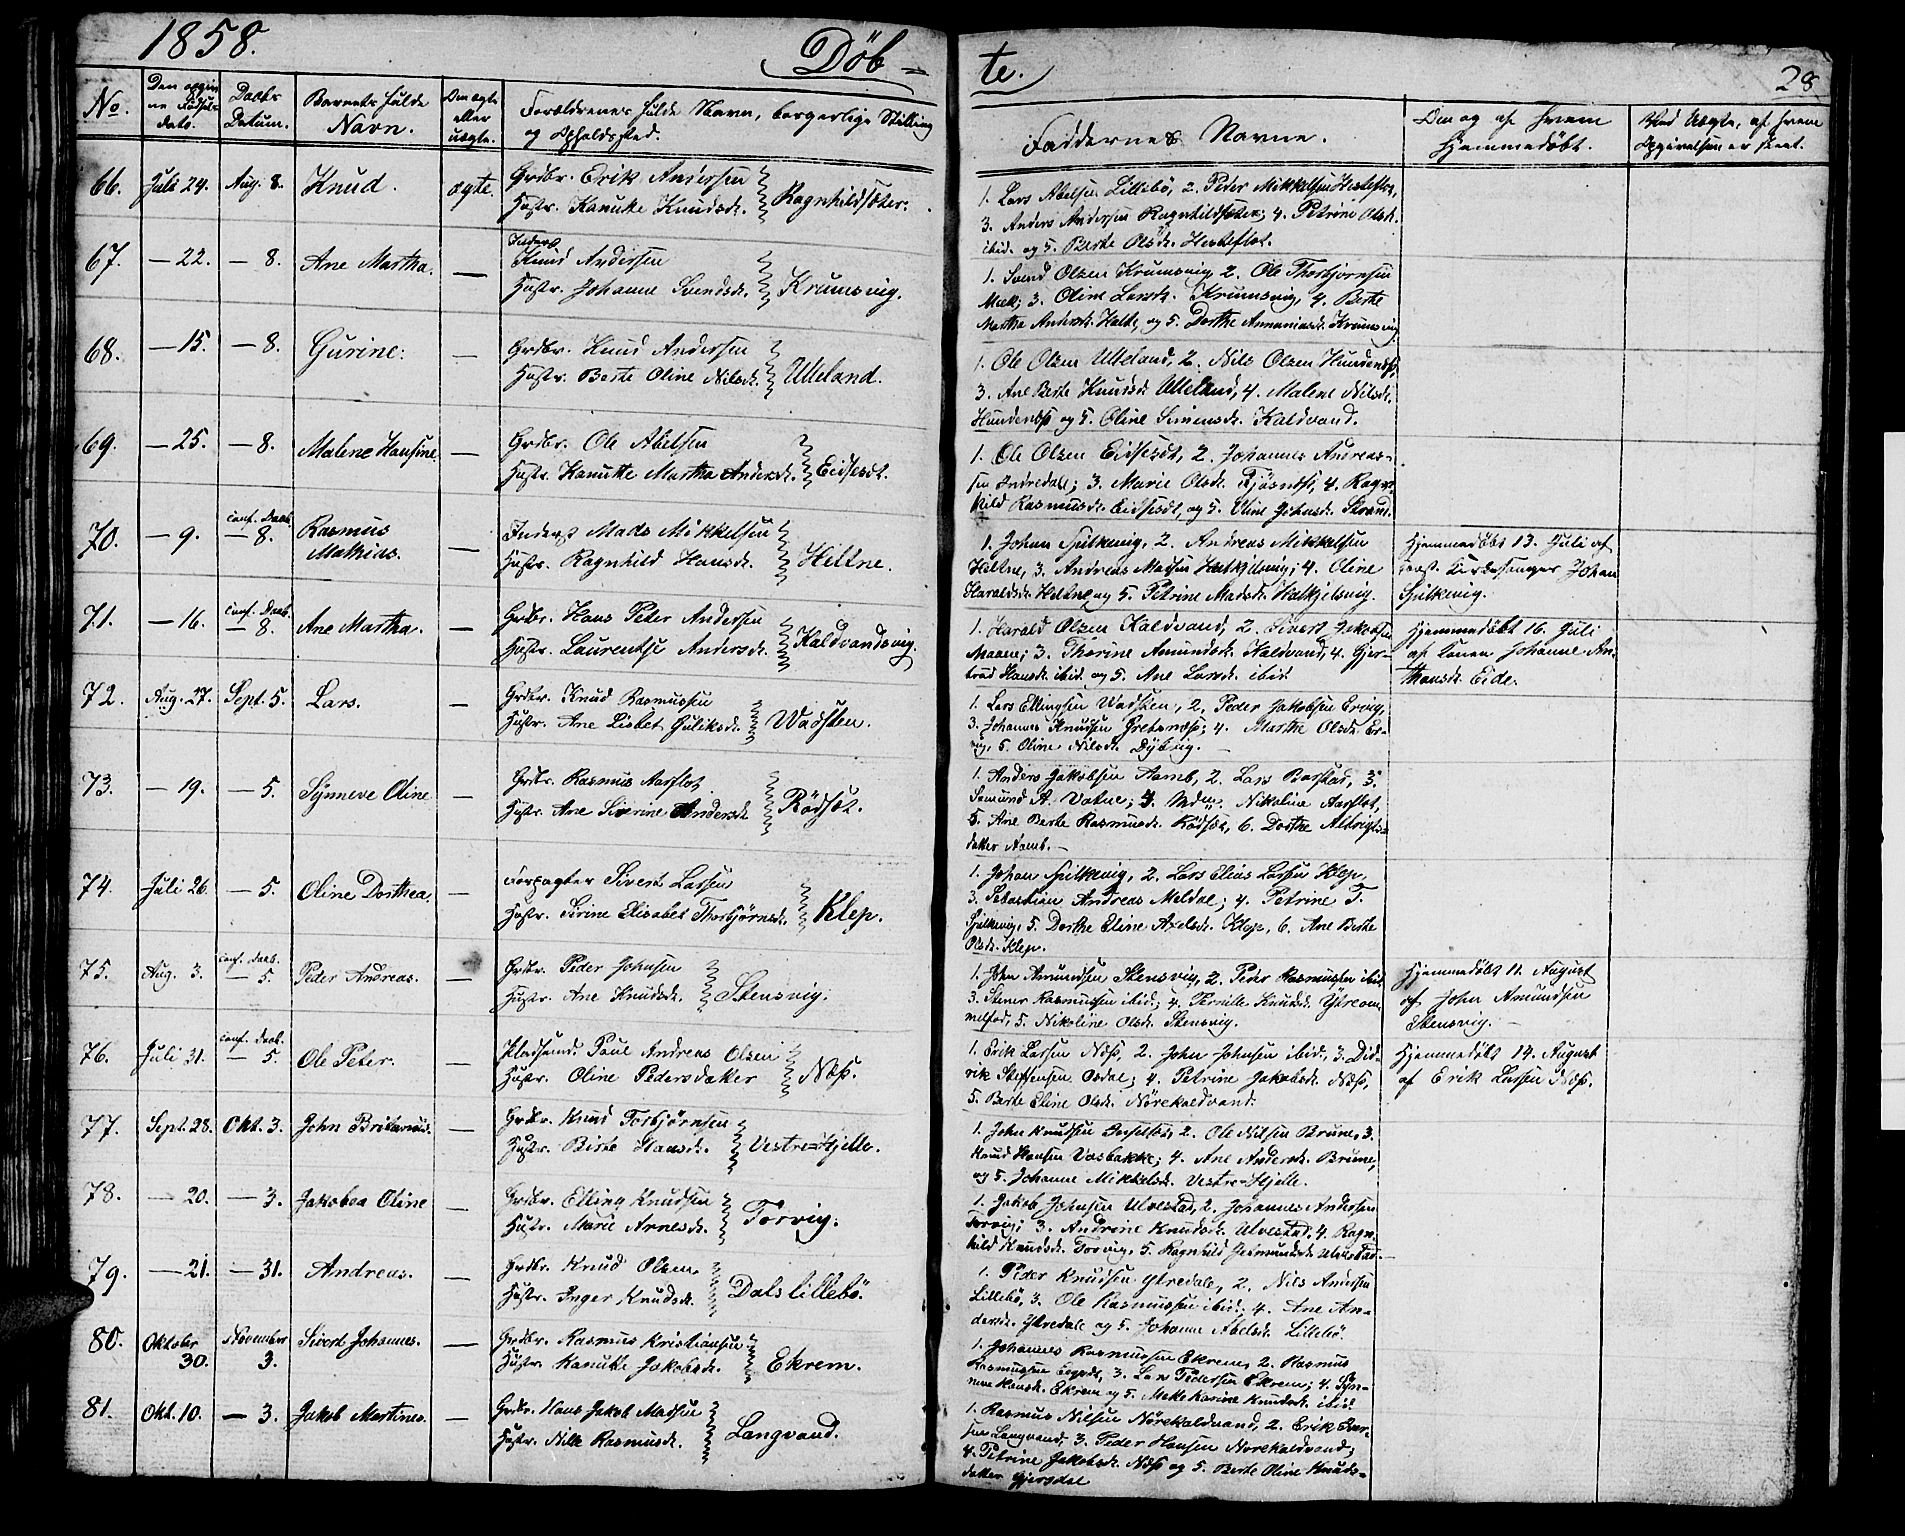 1858.
Döb-
te.
28
No.
Den opgiv-
ne Fødsels-
dato.
Daabs
Datum.
Barnets fulde
Navn.
Om ægte
eller
uægte.
Forældrenes fulde Navn, borgerlige Stilling
og Opholdssted.
Faddernes Navne.
Om og af hvem
hjemmedøbt.
Ved Uægte, af hvem
Opgivelsen er skeet.
66. Juli 24. Aug. 8. Knud. ægte. Grdbr. Erik Andersen
Hustr. Kanutte Knudsdr. Ragnhildsæter.
1. Lars Abelsen Lillebö, 2. Peder Mikkelsen Hesteflot,
3. Anders Andersen Ragnhildsæter; 4. Petrine Olsdr.
ibid. og 5. Berte Olsdr. Hesteflot.
67. — 22. — 8. Ane Martha. — Inderst
Knud Andersen
Hustr. Johanne Svendsdr. Krumsvig.
1. Svend Olsen Krumsvig, 2. Ole Thorbjørnsen
Mæk; 3. Oline Larsdr. Krumsvig, 4. Berte
Martha Andersdr. Holt, og 5. Dorthe Annaniasdr. Krumsvig
68. — 15. — 8. Gurine. — Grdbr. Knud Andersen
Hustr. Berte Oline Nilsdr. Ulleland.
1. Ole Olsen Ulleland, 2. Nils Olsen Hundendss,
3. Ane Berte Knudsdr. Ulleland, 4. Malene Nilsdr.
Hundendss og 5. Oline Simensdr. Kaldvand.
69. — 25. — 8. Malene Hansine. — Grdbr. Ole Abelsen
Hustr. Kanutte Martha Andersdr. Eidsesdt.
1. Ole Olsen Eidsesdt, 2. Johannes Andreas-
sen Indredale; 3. Marie Olsdr. 4. Ragn-
hild Rasmusdr. Eidsesdt, og 5. Oline Johnsdr. Strand.
70. — 9. conf. Daab. — 8. Rasmus
Mathias. — Inderst Mads Mikkelsen
Hustr. Ragnhild Hansdr. Hiltne.
1. Johan Spilkevig, 2. Andreas Mikkelsen
Hiltne, 3. Andreas Madsen Hatkjelsvig; 4. Oline
Haraldsdr. Hiltne, og 5. Petrine Madsdr. Hatkjelsvig.
Hjemmedøbt 13. Juli af
const. Kirkesanger Johan
Spilkevig.
71. — 16. conf. Daab. — 8. Ane Martha. — Grdbr. Hans Peter Andersen
Hustr. Laurentse Andersdr. Kaldvandsvig.
1. Harald Olsen Kaldvand, 2. Sivert Jakobsen
Maaen; 3. Thorine Amundsdr. Kaldvand, 4. Gjer-
trud Hansdr. ibid. og 5. Ane Larsdr. ibid.
Hjemmedøbt 16. Juli
af Konen Johanne An-
thonsdr. Eide.
72. Aug. 27. Sept. 5. Lars. — Grdbr. Knud Rasmussen
Hustr. Ane Lisbet Guliksdr. Wadsten.
1. Lars Ellingsen Wadsten, 2. Peder Jakobsen Ervig,
3. Johannes Knudsen Grebsnæss; 4. Marthe Olsdr. Er-
vig, 5. Oline Nilsdr. Dybvig.
73. — 19. — 5. Synneve Oline — Grdbr. Rasmus Aarflot
Hustr. Ane Siverine Andersdr. Rödsæt.
1. Anders Jakobsen Aamb, 2. Lars Barstad, 3.
Samund A. Vatne; 4. Mdm. Nikoline Aarflot,
5. Ane Berte Rasmusdr. Rödsæt, 6. Dorthe Albrigts-
datter Aamb. —
74. Juli 26. — 5. Oline Dorthea. — Forpagter Sivert Larsen
Hustr. Sirine Elisabet Thorbjørnsdr. Klep.
1. Johan Spilkevig, 2. Lars Elias Larsen Klep,
3. Sebastian Andreas Meldal; 4. Petrine T.
Spilkevig, 5. Dorthe Eline Axelsdr. Klep, 6. Ane Berte
Olsdr. Klep.
75. Aug. 3. conf. Daab. — 5. Peder Andreas. — Grdbr. Peder Johnsen
Hustr. Ane Knudsdr. Stensvig.
1. John Amundsen Stensvig, 2. Peder Rasmussen ibid.
3. Stener Rasmussen ibid; 4. Pernille Knudsdr. Ytreom-
melfod, 5. Nikoline Olsdr. Stensvig.
Hjemmedøbt 11. August
af John Amundsen
Stensvig. —
76. Juli 31. conf. Daab. — 5. Ole Peter. — Pladsmd. Paul Andreas Olsen
Hustr. Oline Pedersdatter Næss.
1. Erik Larsen Næss, 2. John Johnsen ibid., 3. Did-
rik Steffensen Osdal; 4. Petrine Jakobsdr. Næss,
5. Berte Eline Olsdr. Nörekaldvand.
Hjemmedøbt 14. August
af Erik Larsen Næss.
77. Sept. 28. Okt. 3. John Britanius. — Grdbr. Knud Torbjørnsen
Hustr. Birte Hansdr. Vestre-Hjelle.
1. John Knudsen Indselset, 2. Ole Nilsen Brune, 3.
Knud Hansen Vasbakke; 4. Ane Andersdr. Brune,
og 5. Johanne Mikkelsdr. Vestre-Hjelle.
78. — 20. — 3. Jakobea Oline — Grdbr. Elling Knudsen
Hustr. Marie Arnesdr. Torvig.
1. Jakob Johnsen Ulvestad, 2. Johannes Andersen
Torvig; 3. Andrine Knudsdr. Ulvestad, 4. Ragn-
hild Knudsdr. Torvig, 5. Ragnhild Gudmundsdr. Ulvestad.
79. — 21. — 31. Andreas. — Grdbr. Knud Olsen
Hustr. Inger Knudsdr. Dalslillebö.
1. Peder Knudsen Ytredale, 2. Nils Andersen
Lillebö, 3. Ole Rasmussen ibid; 4. Ane An-
dersdr. Ytredale og 5. Johanne Abelsdr. Lillebö.
80. Oktober
30. November
3. Sivert Johannes. — Grdbr. Rasmus Kristiansen
Hustr. Kanutte Jakobsdr. Ekrem.
1. Johannes Rasmussen Ekrem, 2. Rasmus
Rasmussen 3. Lars Pedersen Ekrem; 4. Syn-
neve Hansdr. Ekrem og 5. Mette Karine Knudsdr. ibid.
81. Okt. 10. — 3. Jakob Martines. — Grdbr. Hans Jakob Madsen
Hustr. Nille Rasmusdr. Langvand.
1. Rasmus Nilsen Nörekaldvand, 2. Erik Iver-
sen Langvand, 3. Peder Hansen Nörekaldvand;
4. Petrine Jakobsdr. Næss og 5. Berte Oline Knuds-
datter Gjersdal